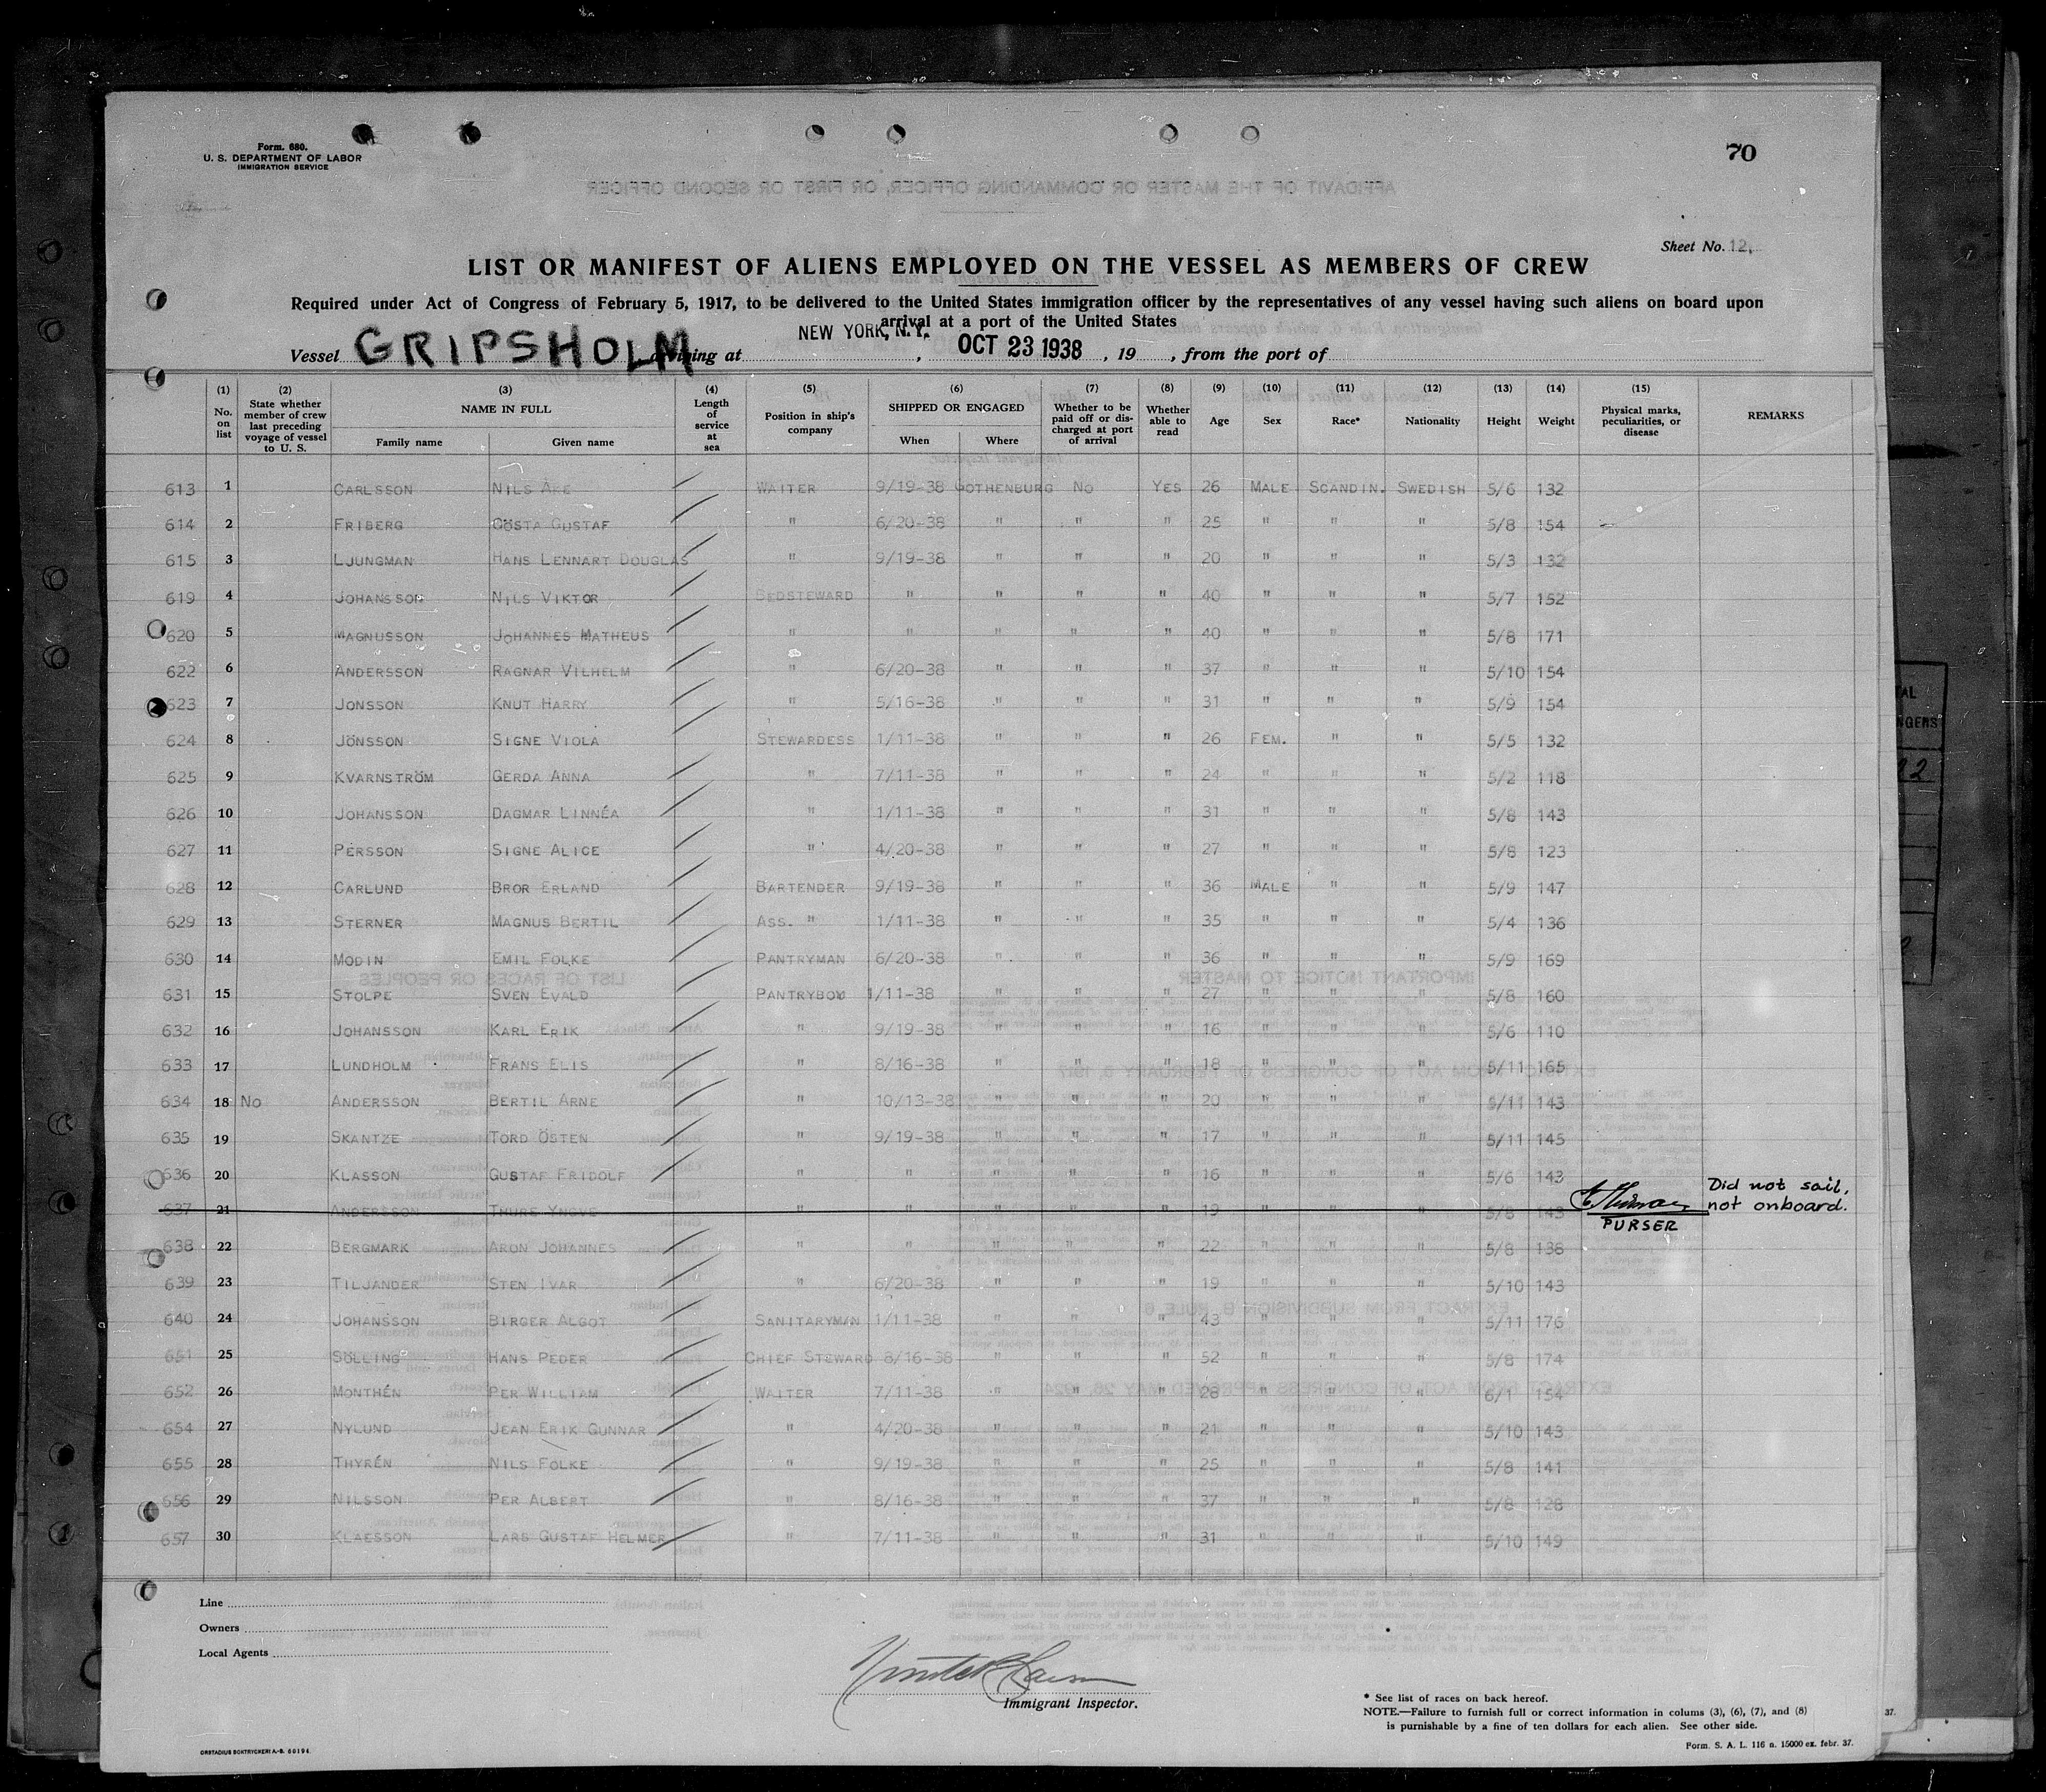 Form. 680.
U. S. DEPARTMENT OF LABOR
IMMIGRATION SERVICE
70
Sheet No. 12.
LIST OR MANIFEST OF ALIENS EMPLOYED ON THE VESSEL AS MEMBERS OF CREW
Required under Act of Congress of February 5, 1917, to be delivered to the United States immigration officer by the representatives of any vessel having such aliens on board upon
arrival at a port of the United States
Vessel GRIPSHOLM arriving at NEW YORK, N.Y., OCT 23 1938, 19 , from the port of
(1) (2) (3) (4) (5) (6) (7) (8) (9) (10) (11) (12) (13) (14) (15)
No. on list State whether member of crew last preceding voyage of vessel to U. S. NAME IN FULL Family name Given name Length of service at sea Position in ship's company SHIPPED OR ENGAGED When Where Whether to be paid off or discharged at port of arrival Whether able to read Age Sex Race* Nationality Height Weight Physical marks, peculiarities, or disease REMARKS
613 1 CARLSSON NILS ÅKE WAITER 9/19-38 GOTHENBURG NO YES 26 MALE SCANDIN. SWEDISH 5/6 132
614 2 FRIBERG GÖSTA GUSTAF " 6/20-38 " " " 25 " " " 5/8 154
615 3 LJUNGMAN HANS LENNART DOUGLAS " 9/19-38 " " " 20 " " " 5/3 132
619 4 JOHANSSON NILS VIKTOR BEDSTEWARD " " " " 40 " " " 5/7 152
620 5 MAGNUSSON JOHANNES MATHEUS " " " " " 40 " " " 5/8 171
622 6 ANDERSSON RAGNAR VILHELM " 6/20-38 " " " 37 " " " 5/10 154
623 7 JONSSON KNUT HARRY " 5/16-38 " " " 31 " " " 5/9 154
624 8 JÖNSSON SIGNE VIOLA STEWARDESS 1/11-38 " " " 26 FEM. " " 5/5 132
625 9 KVARNSTRÖM GERDA ANNA " 7/11-38 " " " 24 " " " 5/2 118
626 10 JOHANSSON DAGMAR LINNÉA " 1/11-38 " " " 31 " " " 5/8 143
627 11 PERSSON SIGNE ALICE " 4/20-38 " " " 27 " " " 5/8 123
628 12 CARLUND BROR ERLAND BARTENDER 9/19-38 " " " 36 MALE " " 5/9 147
629 13 STERNER MAGNUS BERTIL ASS. " 1/11-38 " " " 35 " " " 5/4 136
630 14 MODIN EMIL FOLKE PANTRYMAN 6/20-38 " " " 36 " " " 5/9 169
631 15 STOLPE SVEN EVALD PANTRYBOY 1/11-38 " " " 27 " " " 5/8 160
632 16 JOHANSSON KARL ERIK " 9/19-38 " " " 16 " " " 5/6 110
633 17 LUNDHOLM FRANS ELIS " 8/16-38 " " " 18 " " " 5/11 165
634 18 NO ANDERSSON BERTIL ARNE " 10/13-38 " " " 20 " " " 5/11 143
635 19 SKANTZE TORD ÖSTEN " 9/19-38 " " " 17 " " " 5/11 145
636 20 KLASSON GUSTAF FRIDOLF " " " " " 16 " " " 5/6 143
637 21 ANDERSSON THURE YNGVE " " " " " 19 " " " 5/8 143 PURSER Did not sail, not onboard.
638 22 BERGMARK ARON JOHANNES " " " " " 22 " " " 5/8 138
639 23 TILJANDER STEN IVAR " 6/20-38 " " " 19 " " " 5/10 143
640 24 JOHANSSON BIRGER ALGOT SANITARYMAN 1/11-38 " " " 43 " " " 5/11 176
651 25 SÖLLING HANS PEDER CHIEF STEWARD 8/16-38 " " " 52 " " " 5/8 174
652 26 MONTHÉN PER WILLIAM WAITER 7/11-38 " " " 28 " " " 6/1 154
654 27 NYLUND JEAN ERIK GUNNAR " 4/20-38 " " " 21 " " " 5/10 143
655 28 THYRÉN NILS FOLKE " 9/19-38 " " " 25 " " " 5/8 141
656 29 NILSSON PER ALBERT " 8/16-38 " " " 37 " " " 5/8 128
657 30 KLAESSON LARS GUSTAF HELMER " 7/11-38 " " " 31 " " " 5/10 149
Line
Owners
Local Agents
Immigrant Inspector.
* See list of races on back hereof.
NOTE.—Failure to furnish full or correct information in colums (3), (6), (7), and (8)
is punishable by a fine of ten dollars for each alien. See other side.
ORSTADIUS BOKTRYCKERI A.-B. 60194
Form. S. A. L. 116 n. 15000 ex. febr. 37.